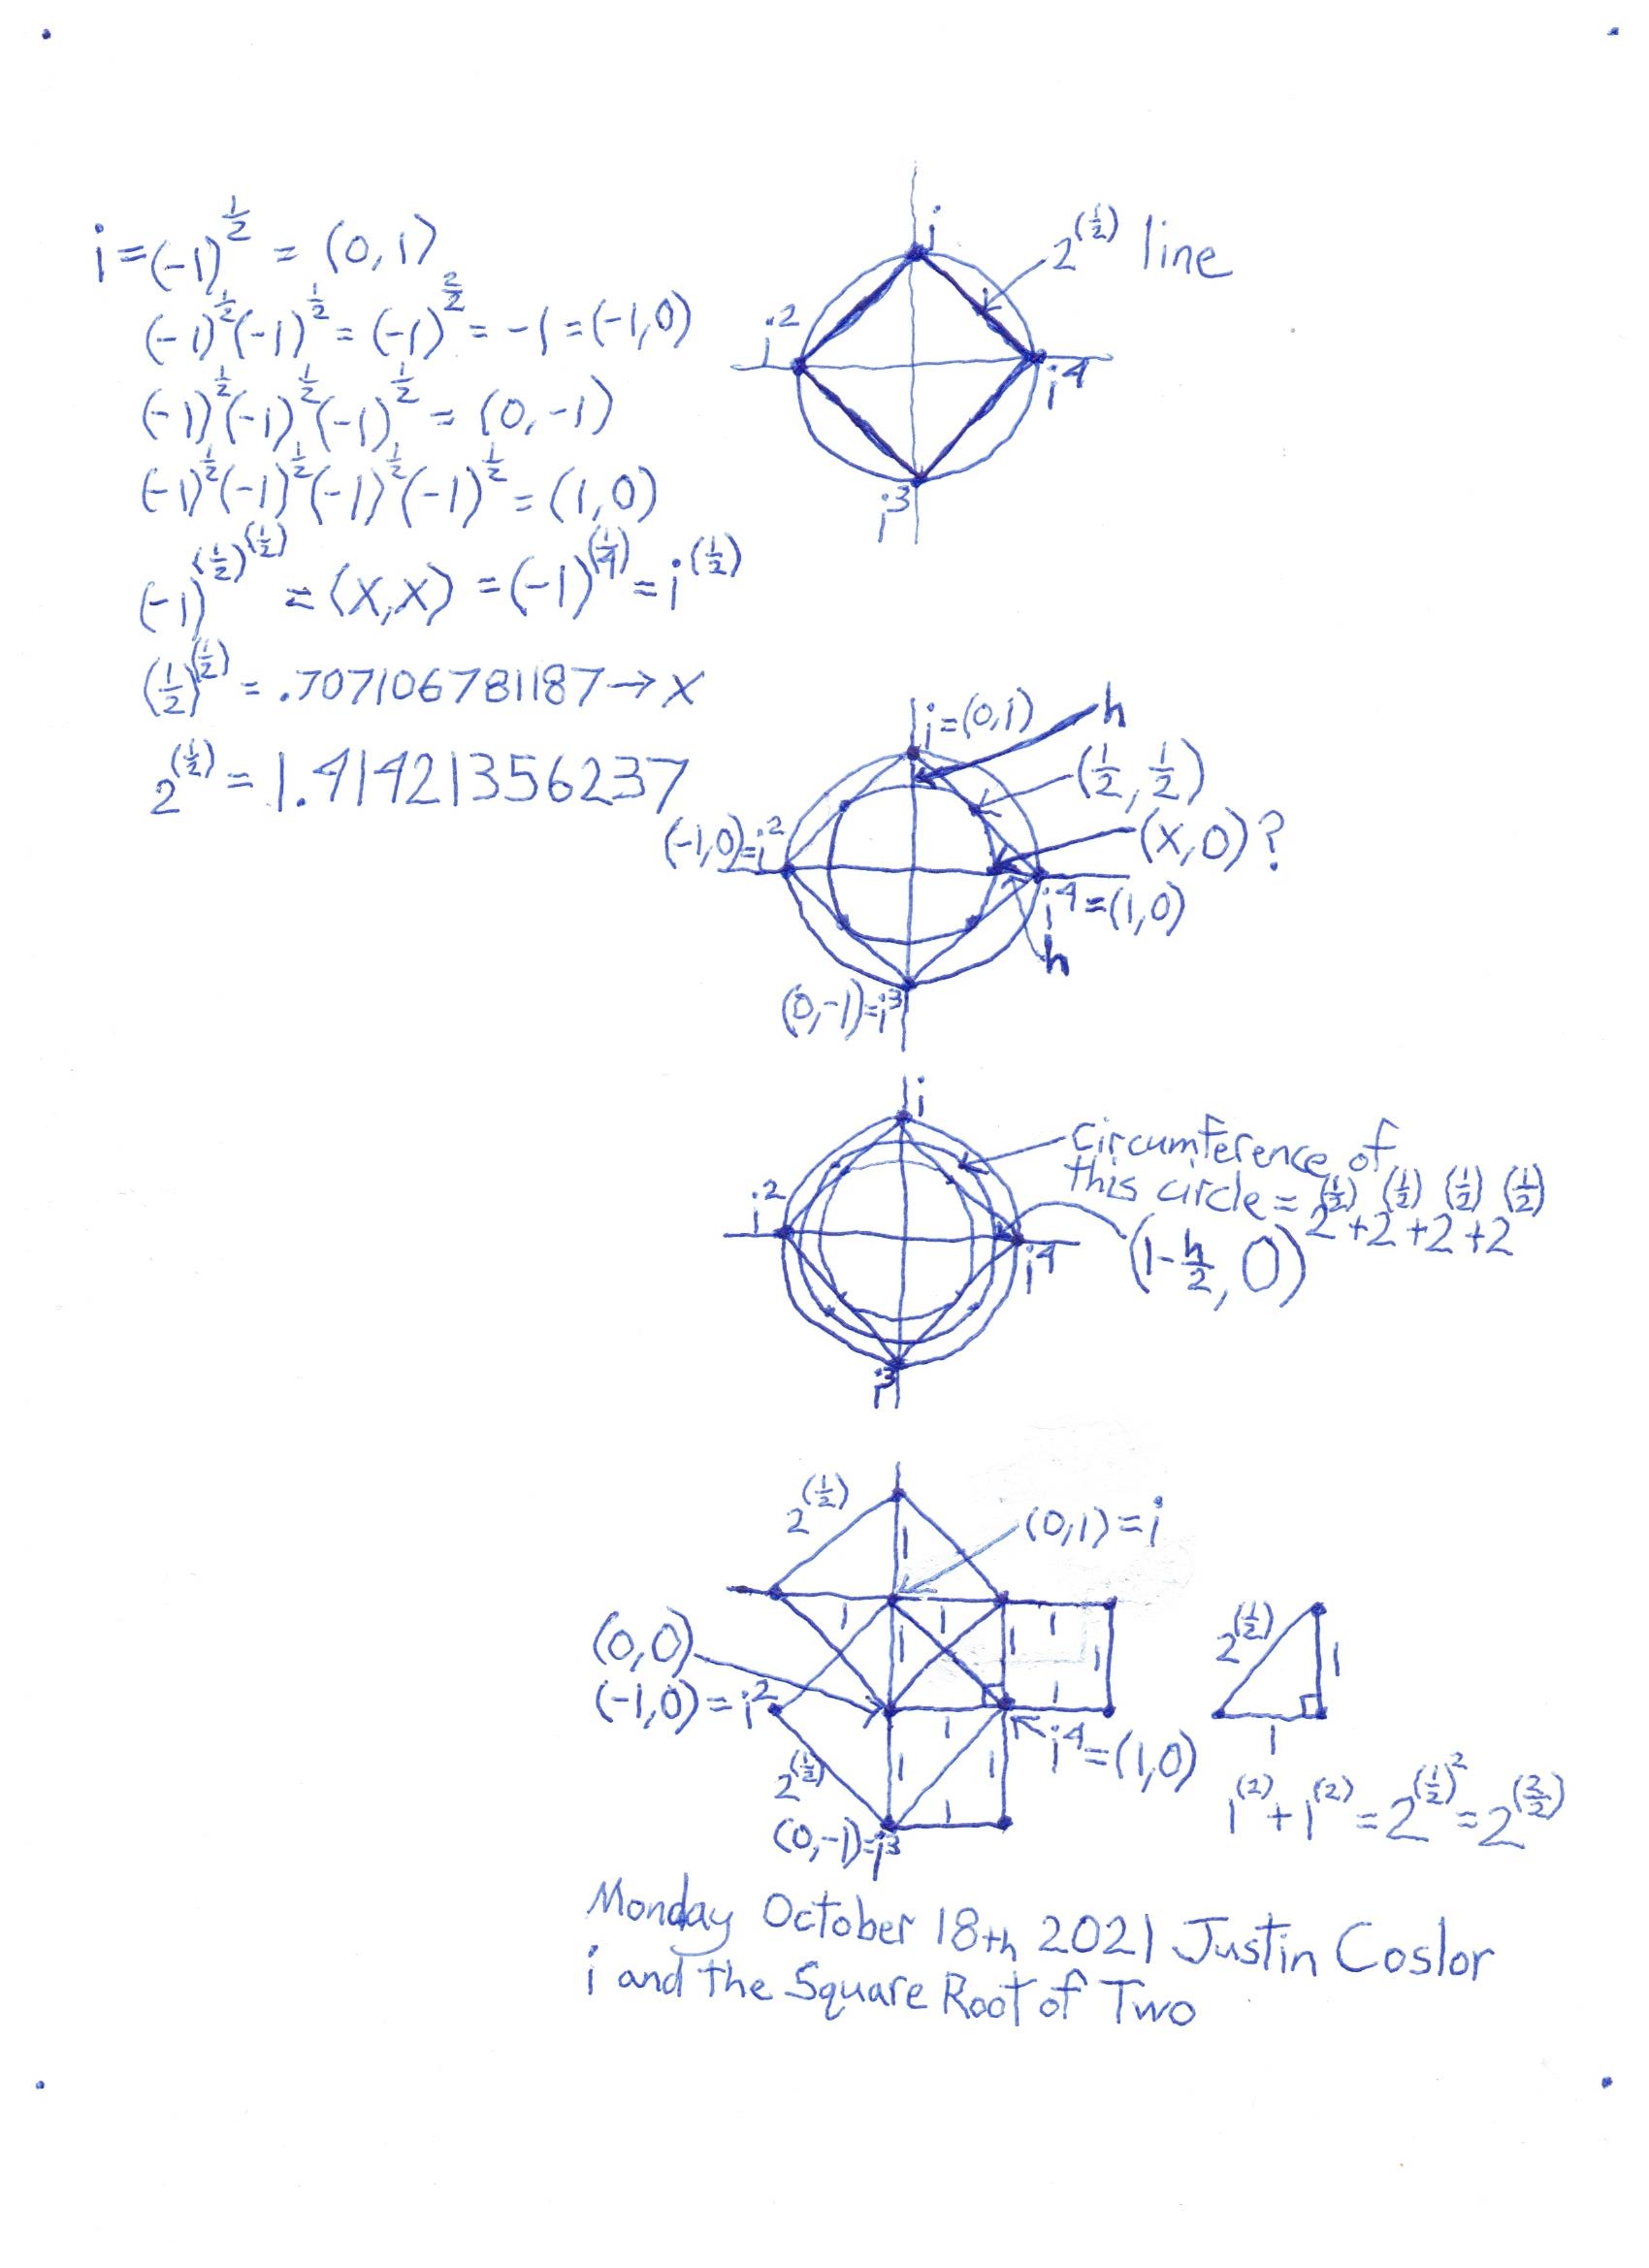 i=(-1)^½ = (0,1)
(-1)^½(-1)^½ = (-1)^2/2 = -1 = (-1,0)
(-1)^½(-1)^½(-1)^½ = (0,-1)
(-1)^½(-1)^½(-1)^½(-1)^½ = (1,0)
(-1)^(½)^(½) = (x,x) = (-1)^(¼) = i^(½)
(½)^(½) = .707106781187→x
2^(½) = 1.41421356237
i
2^(½) line
i²
i⁴
i³
i=(0,1)
h
(½,½)
(-1,0)=i²
(x,0)?
i⁴=(1,0)
h
(0,-1)=i³
i
Circumference of
this circle = 2^(½)+2^(½)+2^(½)+2^(½)
i²
(1-h/2,0)
i⁴
i³
2^(½)
1
(0,1)=i
1 1 1
(0,0)
1 1 1
2^(½)
1
(-1,0)=i²
1 1
1
i⁴=(1,0)
2^(½)
1 1
1
1^(2)+1^(2)=2^(½)^2=2^(2/2)
(0,-1)=i³
Monday October 18th 2021 Justin Coslor
i and the Square Root of Two